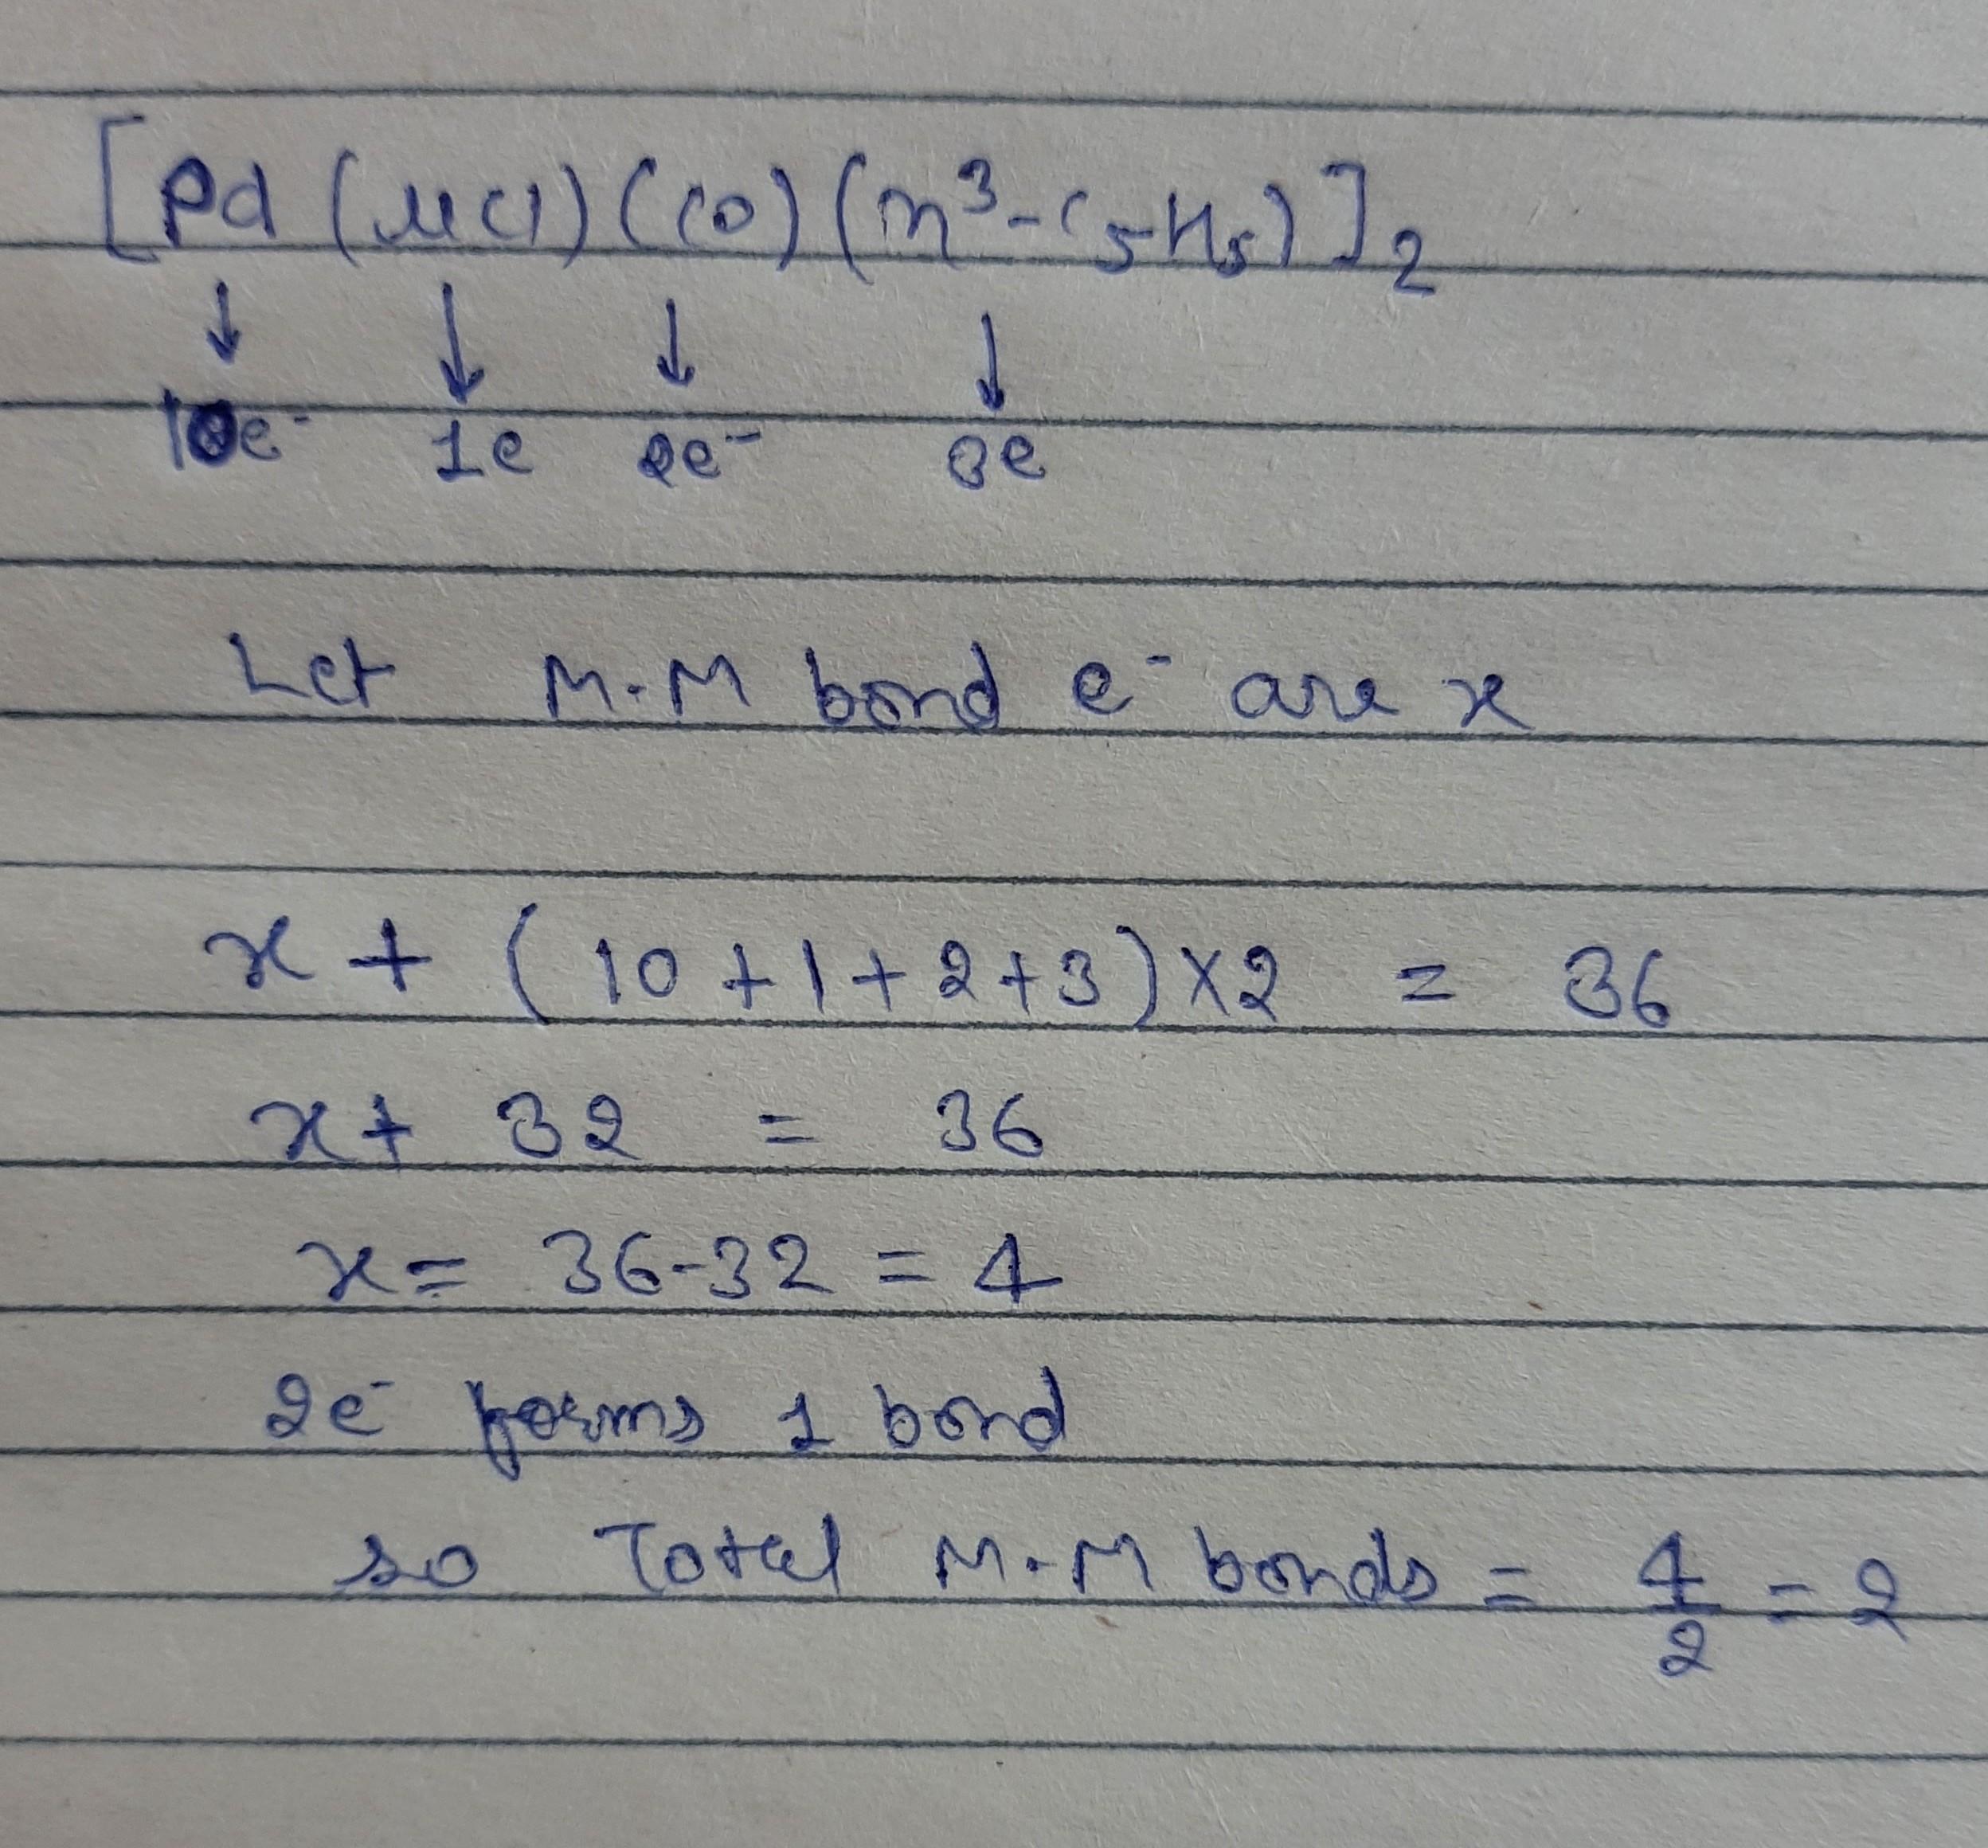 [Pd (μCl) (CO) (η³-C₅H₅)]₂
↓ ↓ ↓ ↓
10e⁻ 1e 2e⁻ 3e
Let M-M bond e⁻ are x
x + (10+1+2+3)×2 = 36
x+ 32 = 36
x= 36-32 = 4
2e⁻ forms 1 bond
so Total M-M bonds = 4/2 = 2